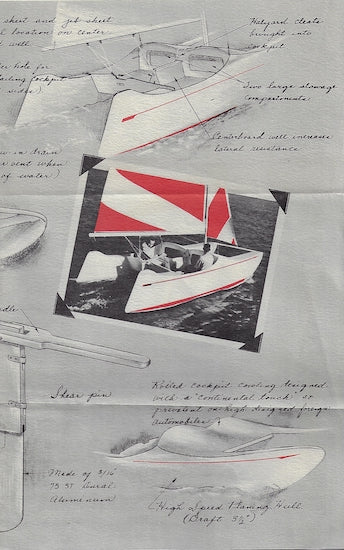 sheet and jib sheet
location on center
well.
Halyard cleats
brought into
cockpit
hole for
cockpit
sides)
Two large stowage
compartments.
Centerboard well increases
lateral resistance
in drain
vent when
of water)
Shear pin
Rolled cockpit cowling designed
with a "continental touch" as
prevalent on high designed foreign
automobiles
Made of 3/16"
75 ST Dural.
Aluminum
High Speed Planing Hull
(Draft 3½")